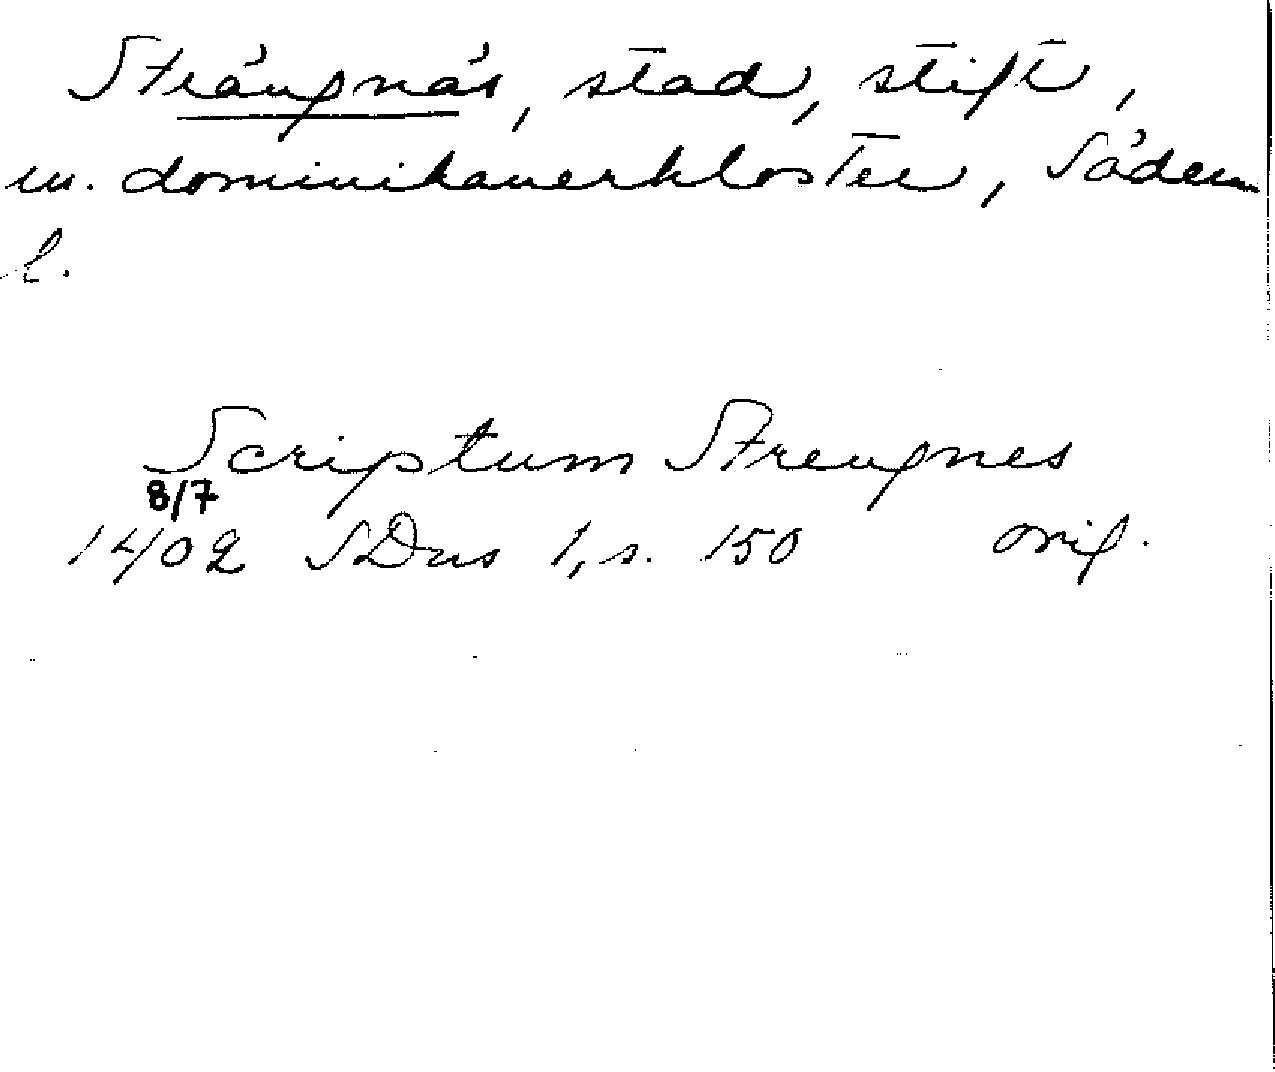 Strängnäs, stad, stift,
m. dominikanerkloster, Söderm
l.
Scriptum Strengnes
8/7
1402 SDns 1, s. 150 orig.